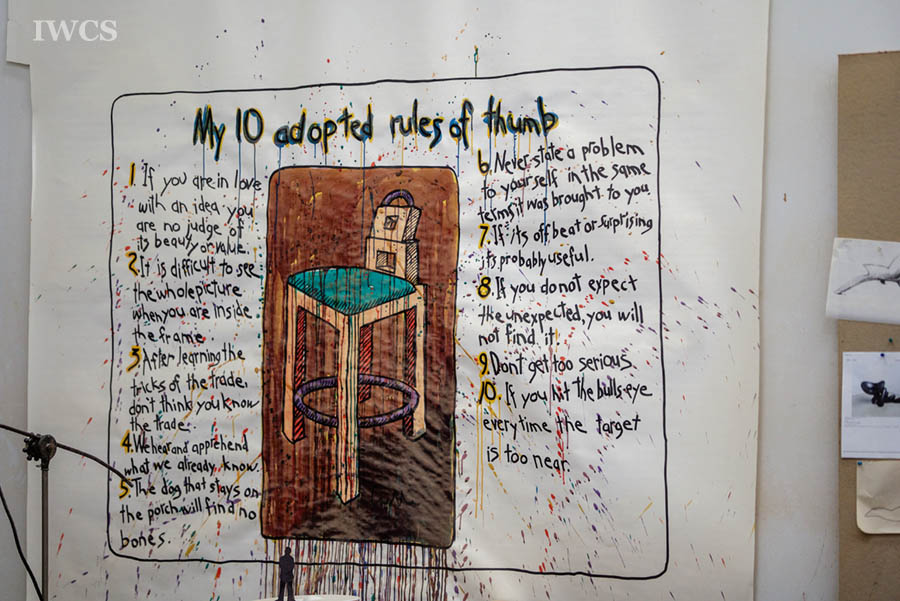 IWCS
My 10 adopted rules of thumb
1. If you are in love
with an idea you
are no judge of
its beauty or value.
2. It is difficult to see
the whole picture
when you are inside
the frame.
3. After learning the
tricks of the trade,
don't think you know
the trade.
4. We hear and apprehend
what we already know.
5. The dog that stays on
the porch will find no
bones.
6. Never state a problem
to yourself in the same
terms it was brought to you
7. If its off beat or surprising
its probably useful.
8. If you do not expect
the unexpected, you will
not find it.
9. Dont get too serious.
10. If you hit the bulls-eye
every time the target
is too near.